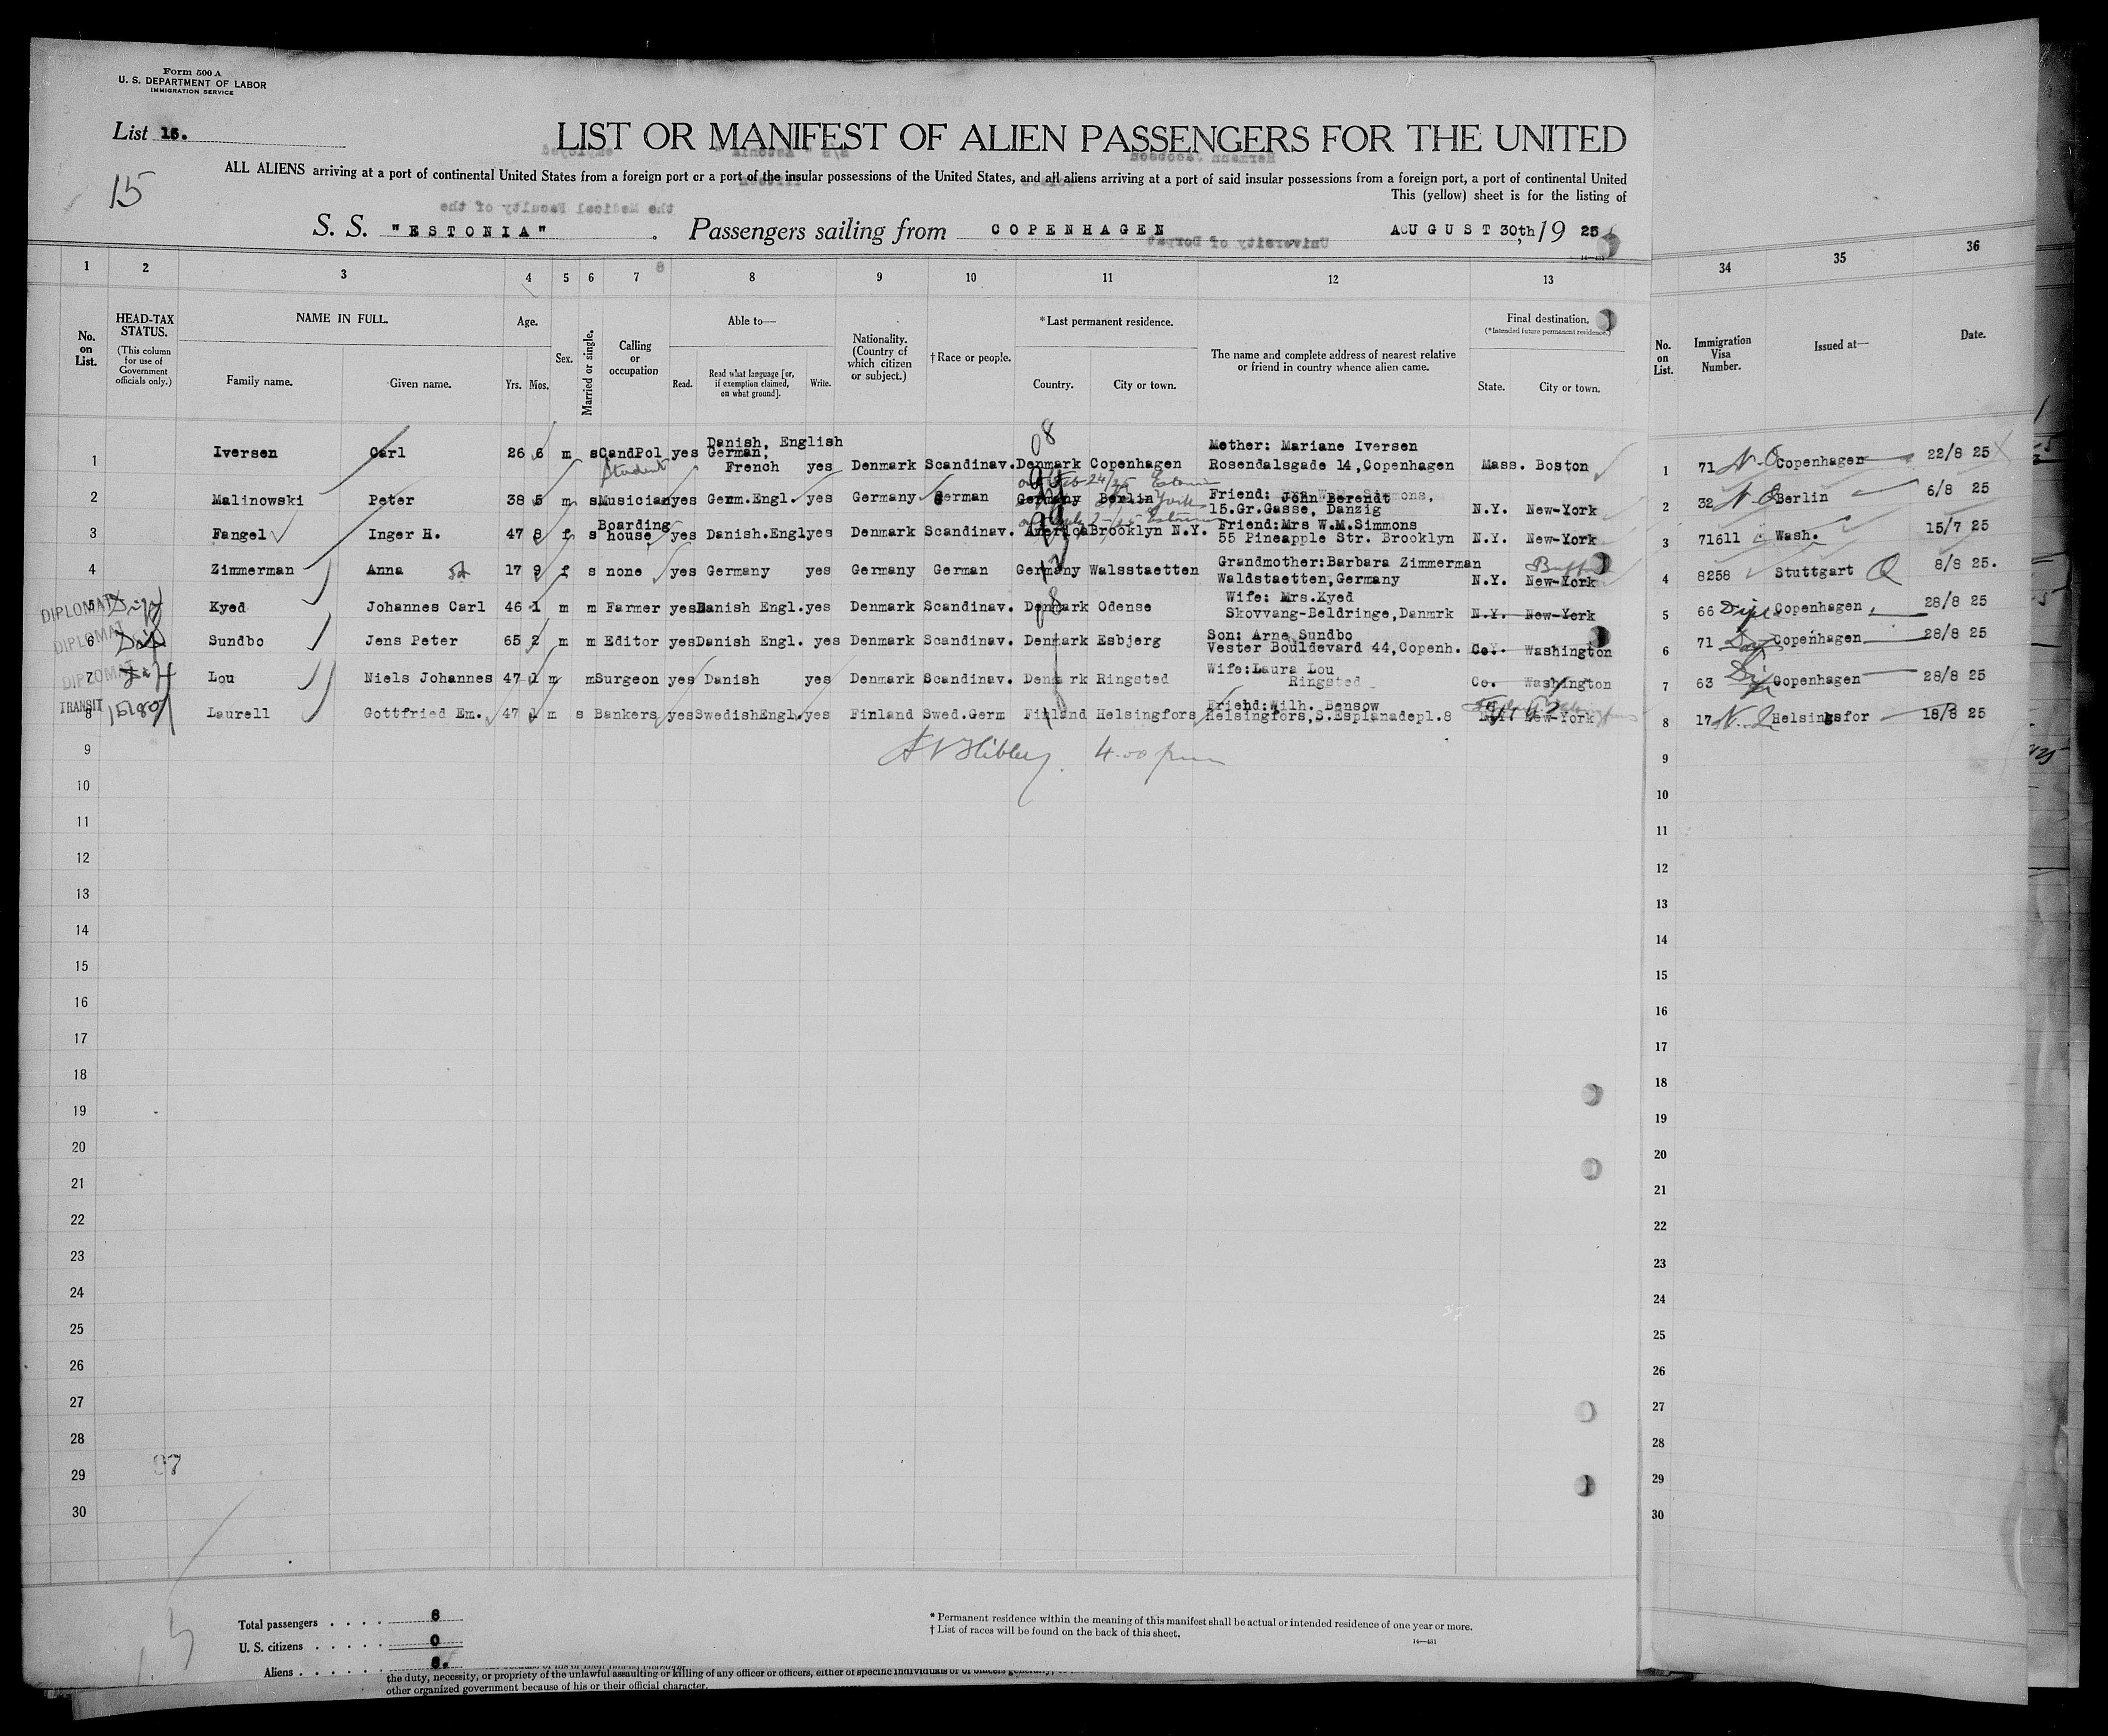 Form 500 A
U. S. DEPARTMENT OF LABOR
IMMIGRATION SERVICE
List 15.
15
LIST OR MANIFEST OF ALIEN PASSENGERS FOR THE UNITED
ALL ALIENS arriving at a port of continental United States from a foreign port or a port of the insular possessions of the United States, and all aliens arriving at a port of said insular possessions from a foreign port, a port of continental United
This (yellow) sheet is for the listing of
S. S. "ESTONIA" . Passengers sailing from COPENHAGEN AUGUST 30th, 19 25
1 2 3 4 5 6 7 8 9 10 11 12 13 34 35 36
No. on List.
HEAD-TAX STATUS.
(This column for use of Government officials only.)
NAME IN FULL.
Family name. Given name.
Age.
Yrs. Mos.
Sex.
Married or single.
Calling or occupation
Able to—
Read. Read what language [or, if exemption claimed, on what ground]. Write.
Nationality. (Country of which citizen or subject.)
†Race or people.
*Last permanent residence.
Country. City or town.
The name and complete address of nearest relative or friend in country whence alien came.
Final destination.
(*Intended future permanent residence.)
State. City or town.
No. on List.
Immigration Visa Number.
Issued at—
Date.
1 Iversen Carl 26 6 m s CandPol Student yes Danish, English German, French yes Denmark Scandinav. Denmark Copenhagen Mother: Mariane Iversen Rosendalsgade 14,Copenhagen Mass. Boston 1 71 Copenhagen 22/8 25
2 Malinowski Peter 38 5 m s Musician yes Germ.Engl. yes Germany German Germany Berlin Friend: John Berendt 15.Gr.Gasse, Danzig N.Y. New-York 2 32 Berlin 6/8 25
3 Fangel Inger H. 47 8 f s Boarding house yes Danish.Engl yes Denmark Scandinav. America Brooklyn N.Y. Friend:Mrs W.M.Simmons 55 Pineapple Str. Brooklyn N.Y. New-York 3 71611 Wash. 15/7 25
4 Zimmerman Anna 17 9 f s none yes Germany yes Germany German Germany Walsstaetten Grandmother:Barbara Zimmerman Waldstaetten,Germany N.Y. New-York 4 8258 Stuttgart 8/8 25.
DIPLOMAT 5 Kyed Johannes Carl 46 1 m m Farmer yes Danish Engl. yes Denmark Scandinav. Denmark Odense Wife: Mrs.Kyed Skovvang-Beldringe,Danmrk N.Y. New-York 5 66 Dipl Copenhagen 28/8 25
DIPLOMAT 6 Sundbo Jens Peter 65 2 m m Editor yes Danish Engl. yes Denmark Scandinav. Denmark Esbjerg Son: Arne Sundbo Vester Bouldevard 44,Copenh. Co. Washington 6 71 Copenhagen 28/8 25
DIPLOMAT 7 Lou Niels Johannes 47 1 m m Surgeon yes Danish yes Denmark Scandinav. Denmark Ringsted Wife:Laura Lou Ringsted Co. Washington 7 63 Copenhagen 28/8 25
TRANSIT 8 Laurell Gottfried Em. 47 1 m s Bankers yes SwedishEngl. yes Finland Swed.Germ Finland Helsingfors Friend:Wilh. Bensow Helsingfors,S.Esplanadepl.8 New-York 8 17 Helsingsfor 18/8 25
9 4.00 pm 9
10 10
11 11
12 12
13 13
14 14
15 15
16 16
17 17
18 18
19 19
20 20
21 21
22 22
23 23
24 24
25 25
26 26
27 27
28 28
29 29
30 30
Total passengers . . . . 8
U. S. citizens . . . . . 0
Aliens . . . . . . 8.
* Permanent residence within the meaning of this manifest shall be actual or intended residence of one year or more.
† List of races will be found on the back of this sheet.
the duty, necessity, or propriety of the unlawful assaulting or killing of any officer or officers, either of specific individuals or of officers generally,
other organized government because of his or their official character.